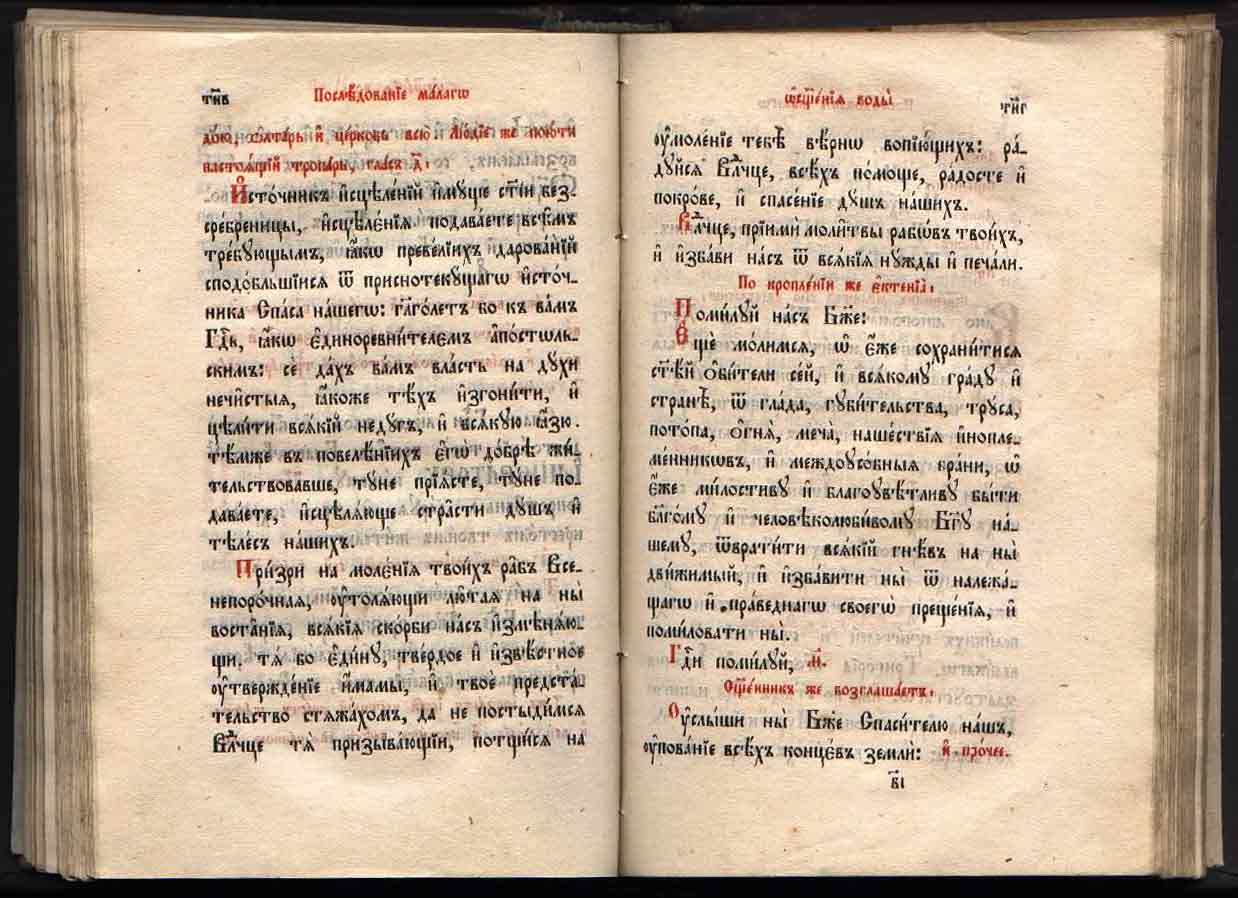 тн҃в
Послѣ́дованїе ма́лагѡ
до́мъ, ѻ҆лта́рь и҆ це́рковь всю̀. Лю́дїе же пою́тъ
настоѧ́щїй тропа́рь, гла́съ д҃:
И҆сто́чникъ и҆сцѣле́нїй и҆му́ще ст҃і́и без-
сре́бреницы, и҆сцѣле́нїѧ подава́ете всѣ̑мъ
тре́бующымъ, ꙗ҆́кѡ превели́ихъ дарова́нїй
сподо́бльшїисѧ ѿ приснотеку́щагѡ и҆сто́ч-
ника Спа́са на́шегѡ: гл҃го́летъ бо къ ва́мъ
Гд҃ь, ꙗ҆́кѡ є҆диноревни́телемъ а҆пⷭ҇тѡль-
скимъ: сѐ да́хъ ва́мъ вла́сть на дꙋ́хи
нечи̑стыѧ, ꙗ҆́коже тѣ́хъ и҆згони́ти, и҆
цѣли́ти всѧ́кїй недꙋ́гъ, и҆ всѧ́кꙋю ꙗ҆́зю.
тѣ́мже въ повелѣ́нїихъ є҆гѡ̀ до́брѣ жи́-
тельствовавше, тꙋ́не прїѧ́сте, тꙋ́не по-
дава́ете, и҆сцѣлѧ́юще стра̑сти дꙋ́шъ и҆
тѣле́съ на́шихъ.
При́зри на моле́нїѧ твои́хъ ра̑бъ Все-
непоро́чнаѧ, ᲂу҆толѧ́ющи лю̑таѧ на ны̀
воста̑нїѧ, всѧ́кїѧ ско́рби на́съ и҆змѣнѧ́ю-
щи. тѧ́ бо є҆ди́нꙋ, тве́рдое и҆ и҆звѣ́стное
ᲂу҆твержде́нїе и҆́мамы, и҆ твоѐ предста́-
тельство стѧжа́хомъ, да не постыди́мсѧ
Влⷣчце тѧ̀ призыва́ющїи, потщи́сѧ на
ѡ҆сщ҃е́нїѧ воды̀
тн҃г
ᲂу҆моле́нїе тебѣ̀ вѣ́рнѡ вопїю́щихъ: ра́-
дꙋйсѧ Влⷣчце, всѣ́хъ по́моще, ра́досте и҆
покро́ве, и҆ спасе́нїе дꙋ́шъ на́шихъ.
Влⷣчце, прїимѝ моли̑твы рабѡ́въ твои́хъ,
и҆ и҆зба́ви на́съ ѿ всѧ́кїѧ нꙋ́жды и҆ печа́ли.
По кропле́нїи же є҆ктенїа̀:
Поми́лꙋй на́съ Бж҃е:
Є҆щѐ мо́лимсѧ, ѡ҆ є҆́же сохрани́тисѧ
ст҃ѣ́й ѻ҆би́тели се́й, и҆ всѧ́комꙋ гра́дꙋ и҆
странѣ̀, ѿ гла́да, гꙋби́тельства, трꙋ́са,
пото́па, ѻ҆гнѧ̀, меча̀, наше́ствїѧ и҆нопле-
ме́нникѡвъ, и҆ междоꙋсо́бныѧ бра́ни, ѡ҆
є҆́же ми́лостивꙋ и҆ благоꙋвѣ́тливꙋ бы́ти
бл҃го́мꙋ и҆ человѣколюби́вомꙋ Бг҃ꙋ на́-
шемꙋ, ѿврати́ти всѧ́кїй гнѣ́въ на ны̀
дви́жимый, и҆ и҆зба́вити ны̀ ѿ належа́-
щагѡ и҆ пра́веднагѡ своегѡ̀ преще́нїѧ, и҆
поми́ловати ны̀.
Гдⷭ҇и поми́лꙋй, м҃.
Сщ҃е́нникъ же возглаша́етъ:
Оу҆слы́ши ны̀ Бж҃е Спаси́телю на́шъ,
ᲂу҆пова́нїе всѣ́хъ конце́въ землѝ: и҆ про́чее.
в҃і